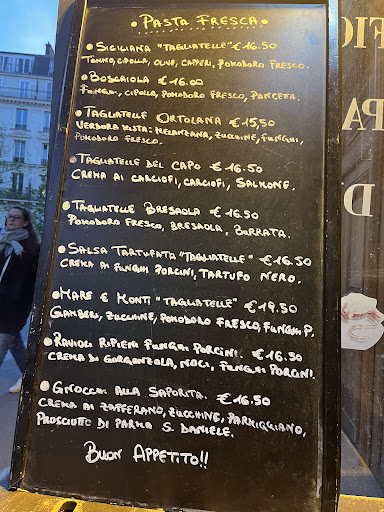 PASTA FRESCA.
SICILIANA "TAGLIATELLE" € 16.50
TONNO, CIPOLLA, OLIVE, CAPERI, POMODORO FRESCO.
BOSCAIOLA € 16.00
FUNGHI, CIPOLLA, POMODORO FRESCO, PANCETTA.
TAGLIATELLE ORTOLANA € 15,50
VERDURA MISTA: MELANZANA, ZUCCHINE, FUNGHI,
POMODORO FRESCO.
TAGLIATELLE DEL CAPO € 16.50
CREMA AI CARCIOFI, CARCIOFI, SALMONE.
TAGLIATELLE BRESAOLA € 16.50
POMODORO FRESCO, BRESAOLA, BURRATA.
SALSA TARTUFATA "TAGLIATELLE" € 16.50
CREMA AI FUNGHI PORCINI, TARTUFO NERO.
MARE E MONTI "TAGLIATELLE" € 19.50
GAMBERI, ZUCCHINE, POMODORO FRESCO, FUNGHI P.
RAVIOLI RIPIENI FUNGHI PORCINI. € 16.50
CREMA DI GORGONZOLA, NOCI, FUNGHI PORCINI.
GNOCCHI ALLA SAPORITA. € 16.50
CREMA AI ZAFFERANO, ZUCCHINE, PARMIGGIANO,
PROSCIUTTO DI PARMA S. DANIELE.
BUON APPETITO!!